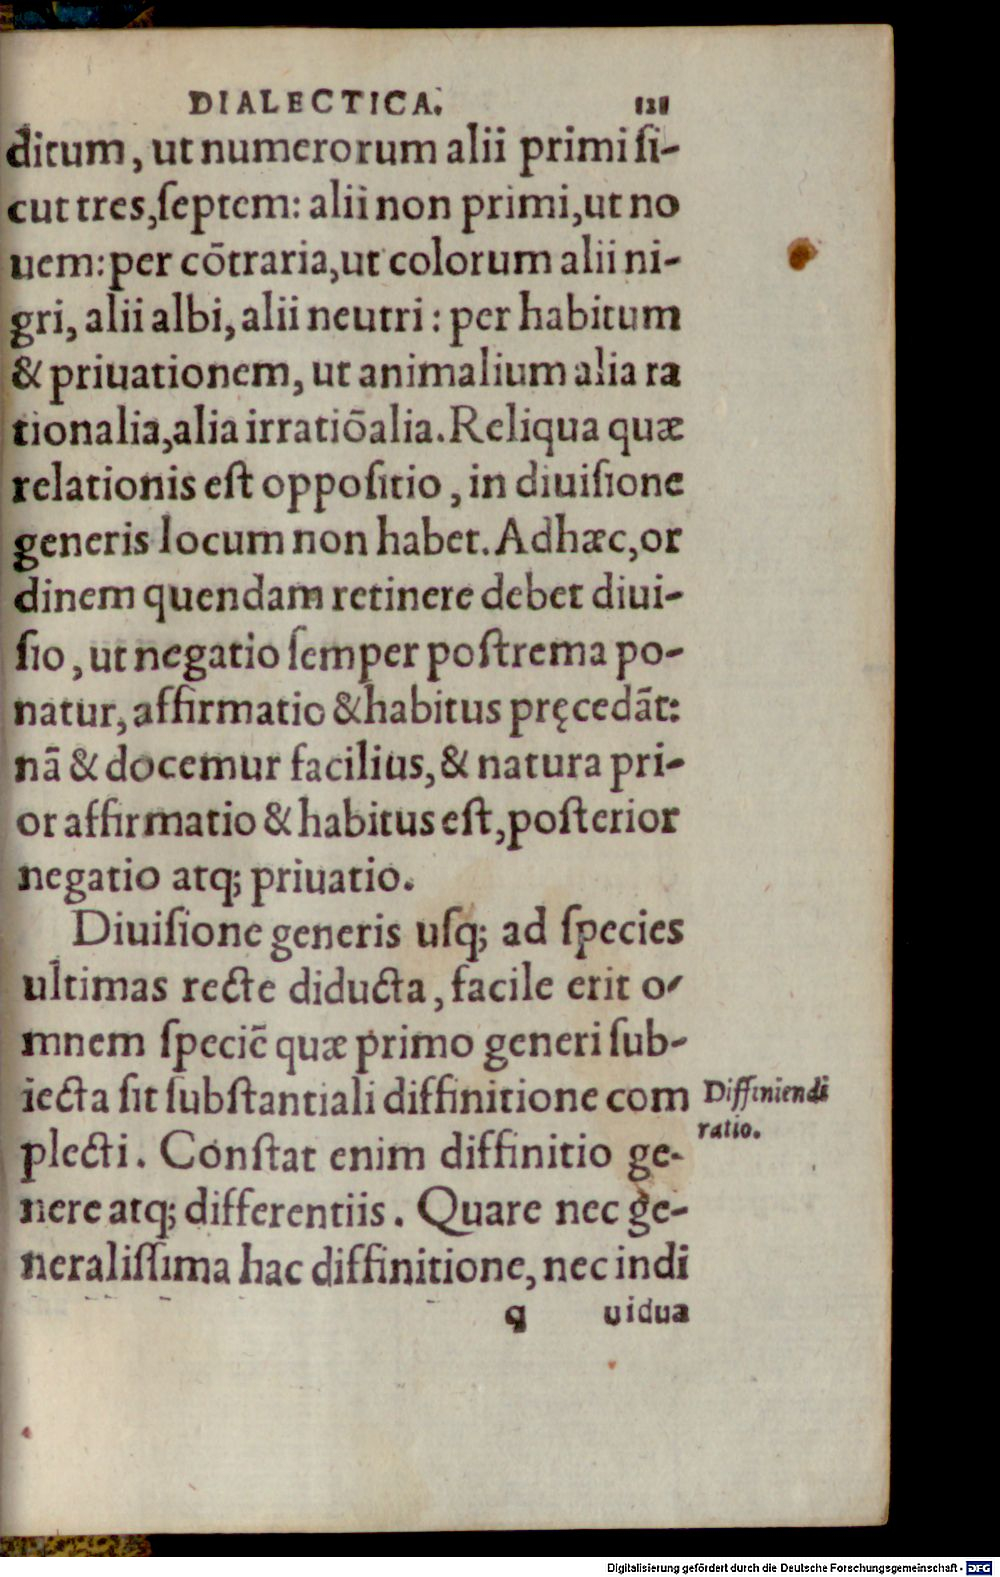 DIALECTICA. 121
ditum, ut numerorum alii primi ſi-
cut tres, ſeptem: alii non primi, ut no
uem: per cõtraria, ut colorum alii ni-
gri, alii albi, alii neutri: per habitum
& priuationem, ut animalium alia ra
tionalia, alia irratiõalia. Reliqua quæ
relationis eſt oppoſitio, in diuiſione
generis locum non habet. Adhæc, or
dinem quendam retinere debet diui-
ſio, ut negatio ſemper poſtrema po-
natur, affirmatio & habitus pręcedãt:
nã & docemur facilius, & natura pri-
or affirmatio & habitus eſt, poſterior
negatio atq; priuatio.
Diuiſione generis uſq; ad ſpecies
ultimas recte diducta, facile erit o-
mnem ſpeciẽ quæ primo generi ſub-
iecta ſit ſubſtantiali diffinitione com
plecti. Conſtat enim diffinitio ge-
nere atq; differentiis. Quare nec ge-
neraliſſima hac diffinitione, nec indi
q uidua
Diffiniendi
ratio.
Digitalisierung gefördert durch die Deutsche Forschungsgemeinschaft - DFG